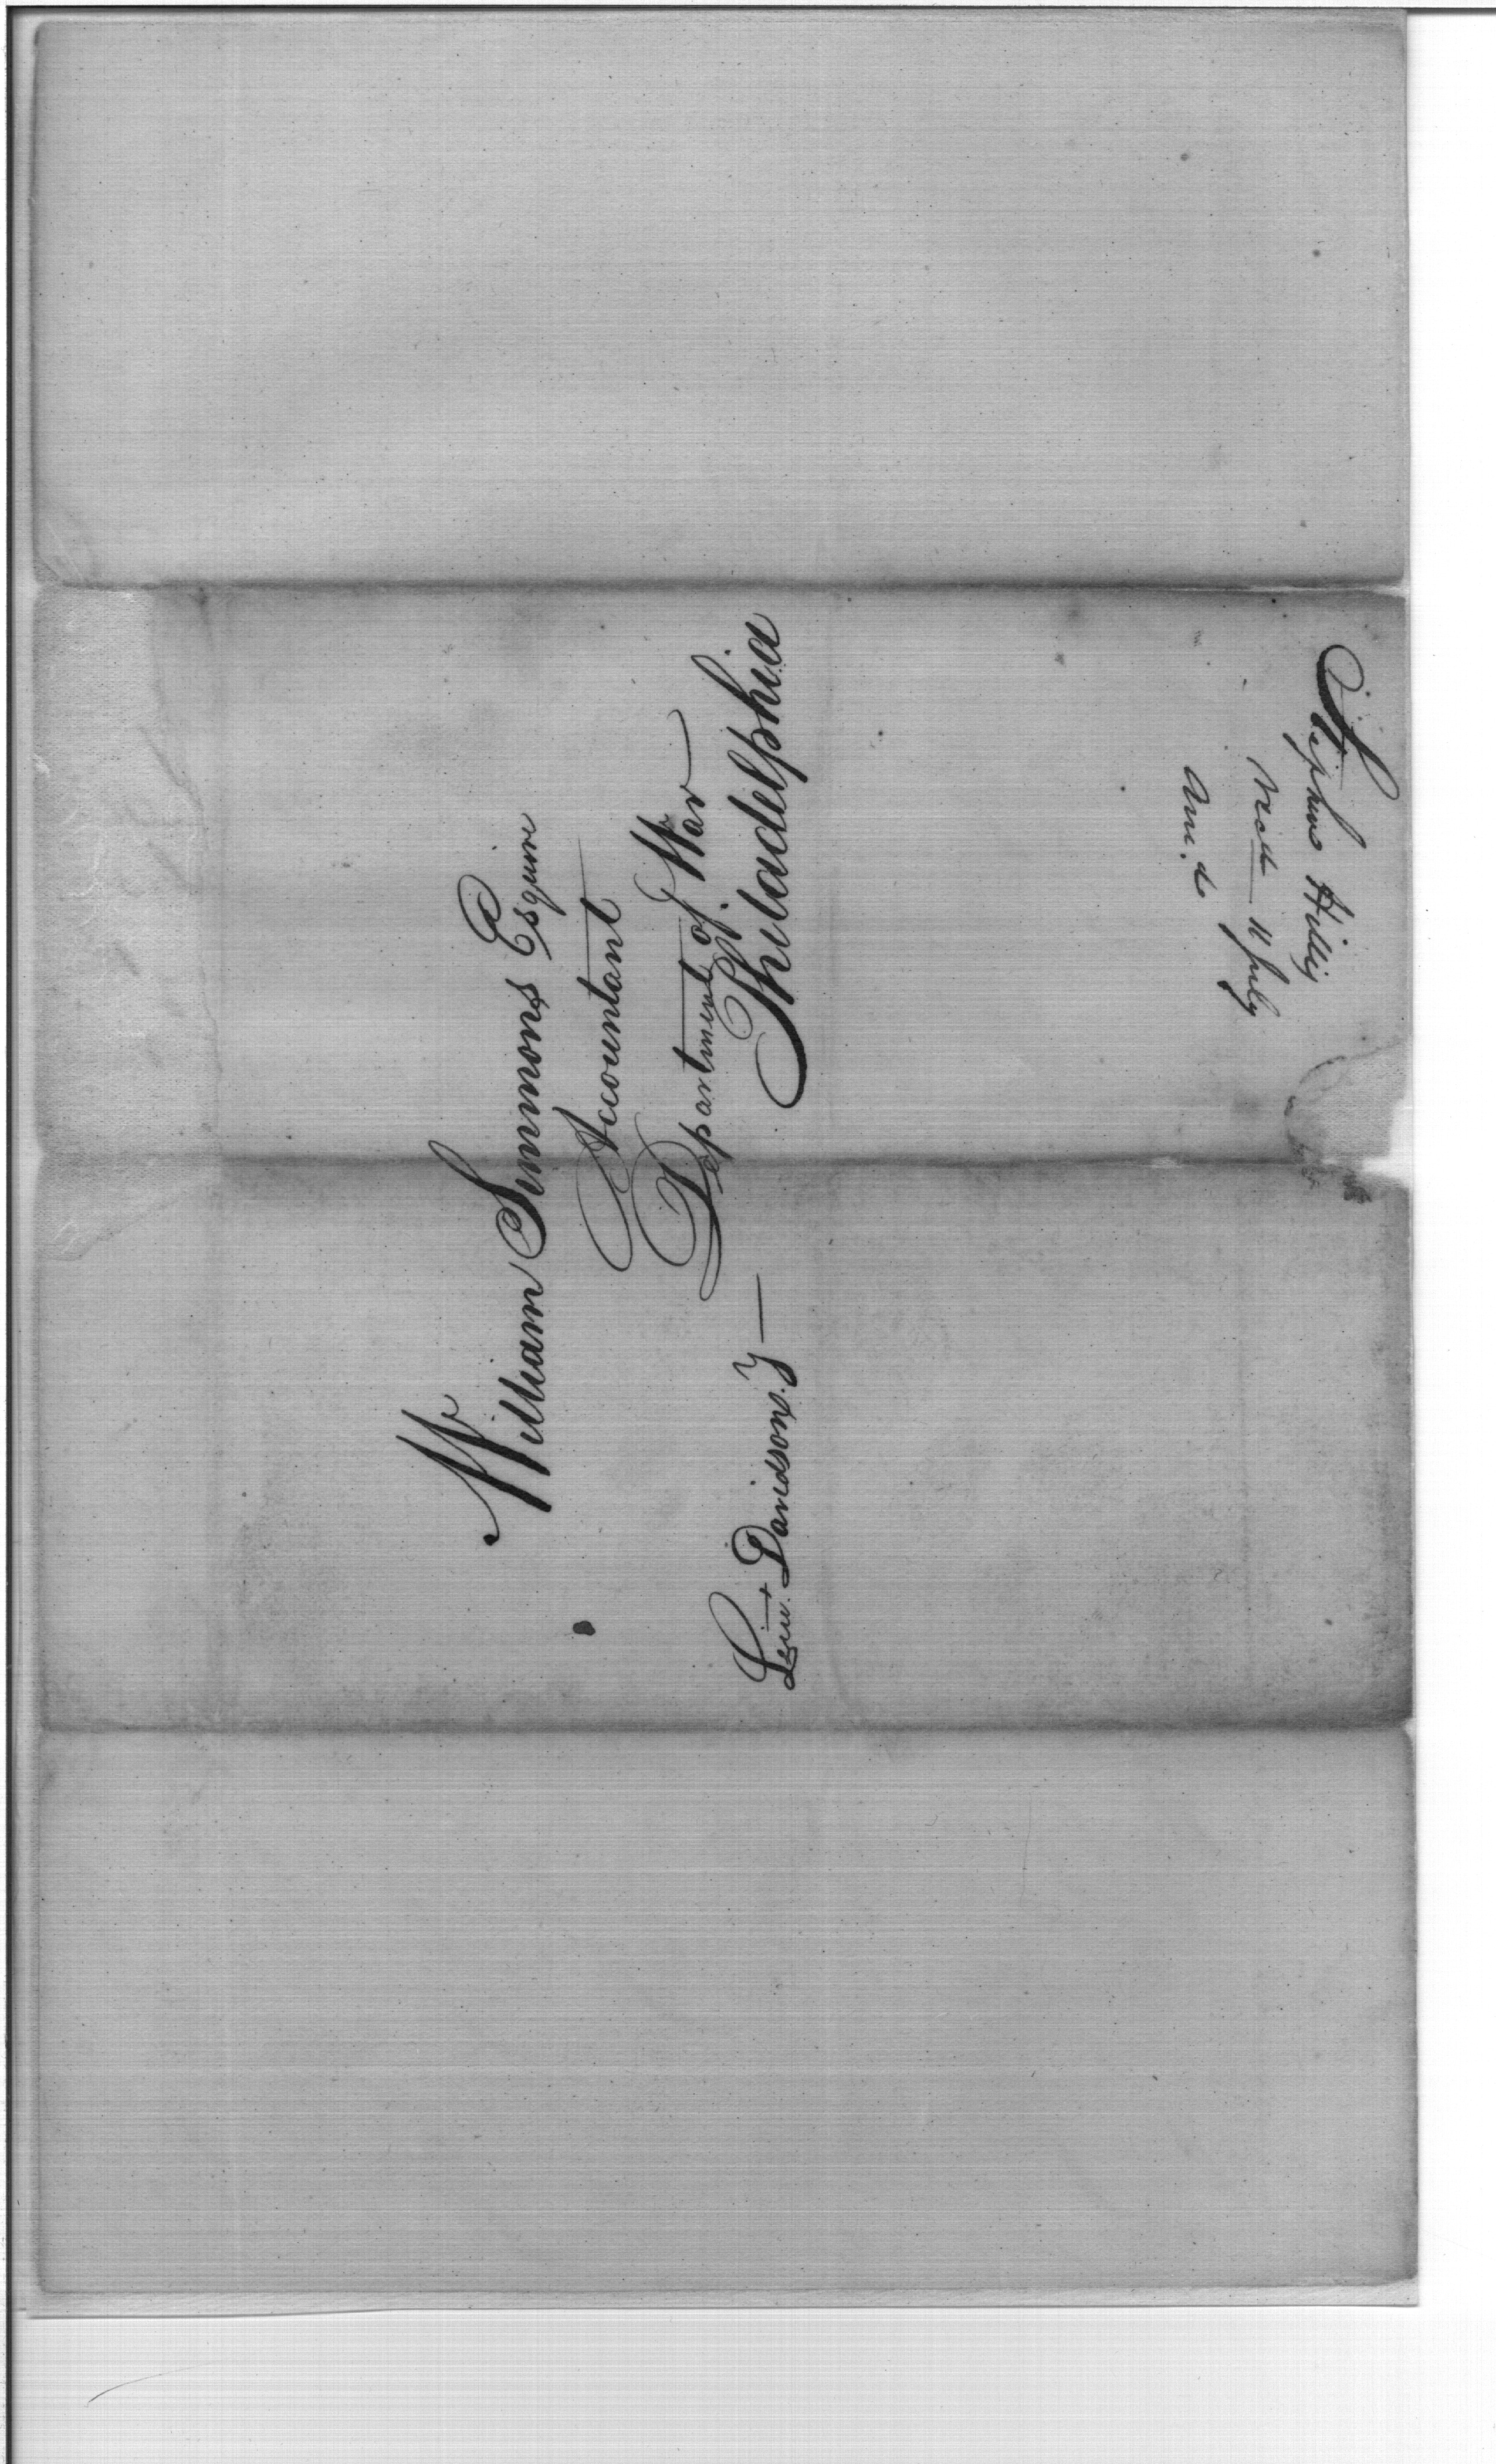 William Simmons Esquire
Accountant
Department of War
Philadelphia
Lieu.t Davidson.
Stephen Hillis
11 July